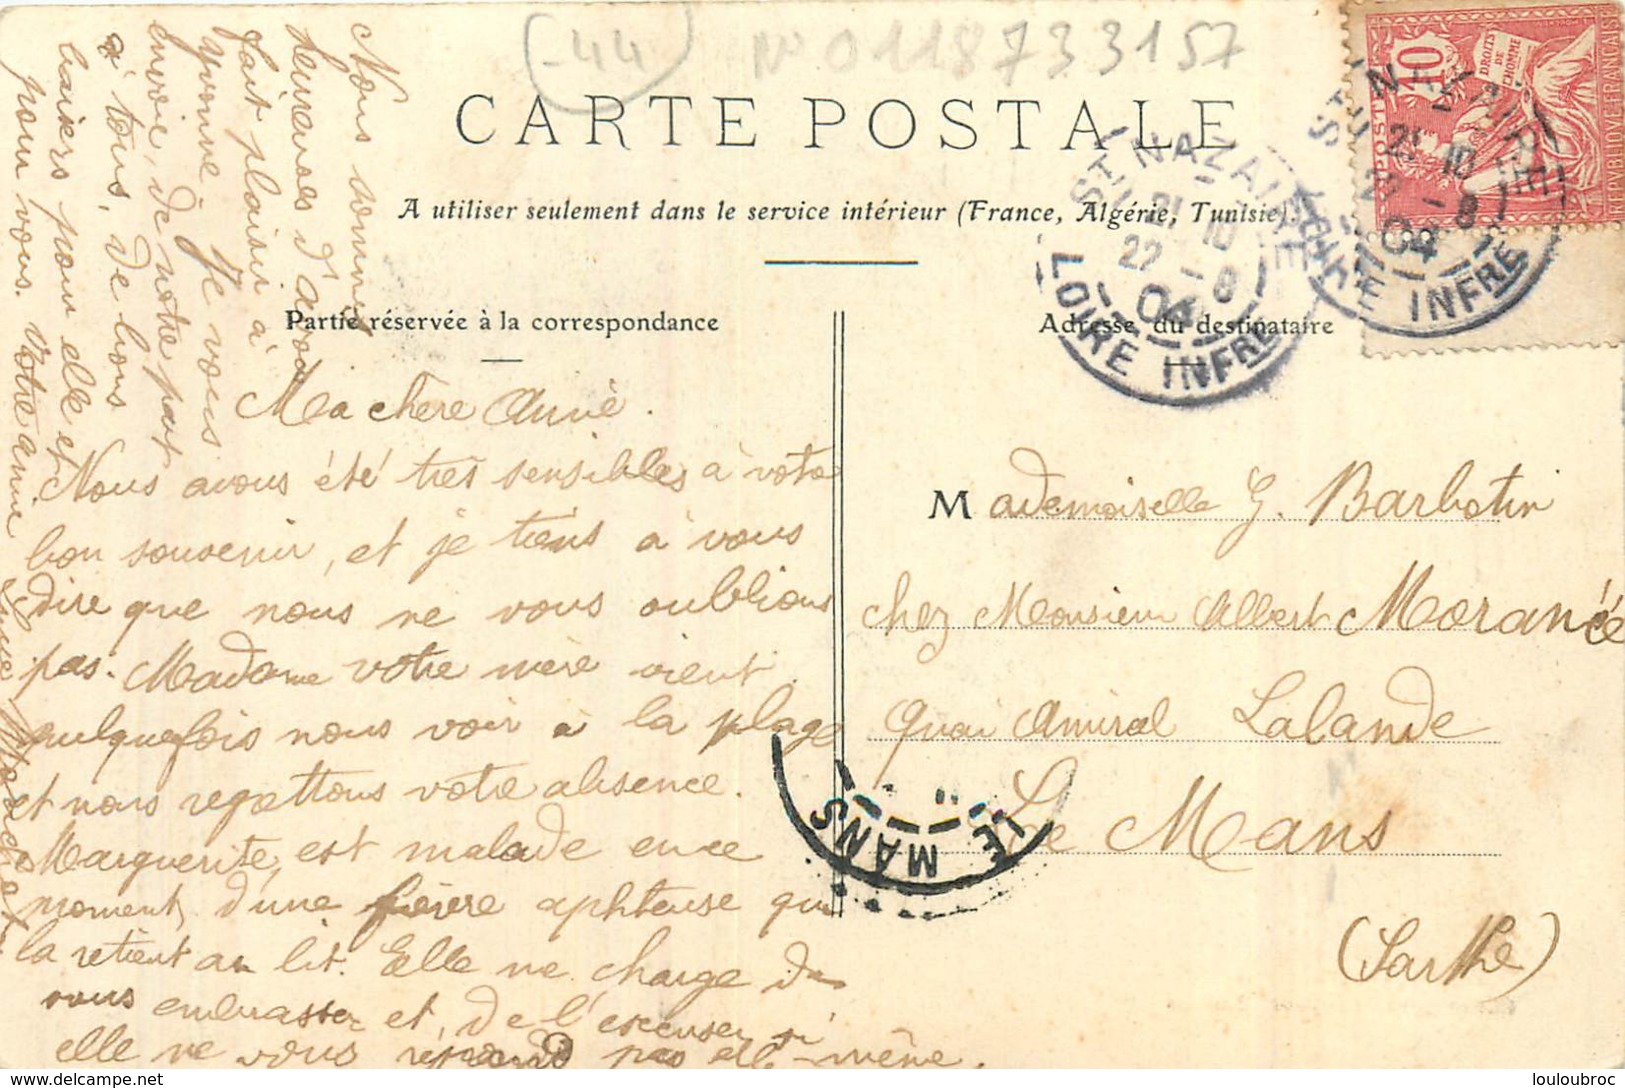 -44
N° 0118733157
CARTE POSTALE
A utiliser seulement dans le service intérieur (France, Algérie, Tunisie).
Partie réservée à la correspondance
Adresse du destinataire
10
POSTES
DROITS DE L'HOMME
REPUBLIQUE FRANCAISE
ST NAZAIRE
21 10
22 - 8
04
LOIRE INFRE
ST NAZAIRE
21 10
22 - 8
04
LOIRE INFRE
Ma chère Amie.
Nous avons été très sensibles à votre
bon souvenir, et je tiens à vous
dire que nous ne vous oublions
pas. Madame votre mère vient
quelquefois nous voir à la plage
et nous regettons votre absence.
Marguerite, est malade en ce
moment, d'une fièvre aphteuse qui
la retient au lit. Elle me charge de
vous embrasser et, de l'excuser si
elle ne vous répond pas elle-même.
Nous sommes
heureuses d'avoir
fait plaisir à
Yvonne. Je vous
envoie, de notre part
à tous, de bons
baisers pour elle et
pour vous. Votre amie
Mademoiselle G. Barbotin
chez Monsieur Albert Morancé
Quai Amiral Lalande
Le Mans
(Sarthe)
LE MANS
louloubroc